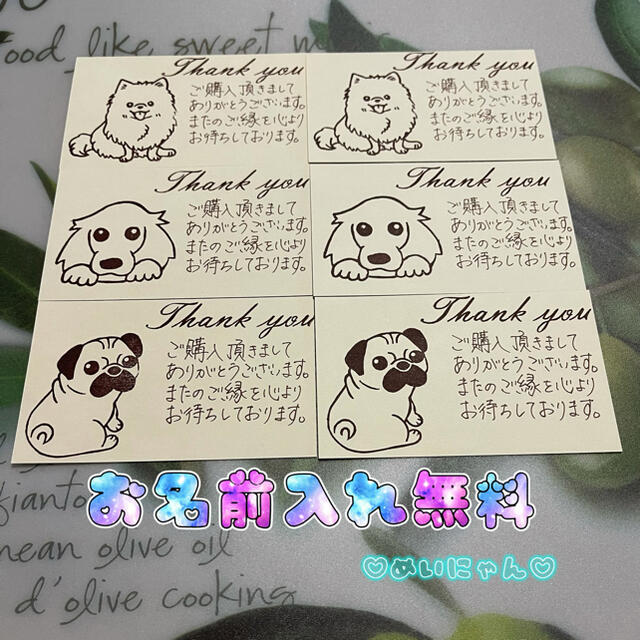 food like sweet m
Thank you
ご購入頂きまして
ありがとうございます。
またのご縁を心より
お待ちしております。
Thank you
ご購入頂きまして
ありがとうございます。
またのご縁を心より
お待ちしております。
Thank you
ご購入頂きまして
ありがとうございます。
またのご縁を心より
お待ちしております。
Thank you
ご購入頂きまして
ありがとうございます。
またのご縁を心より
お待ちしております。
Thank you
ご購入頂きまして
ありがとうございます。
またのご縁を心より
お待ちしております。
Thank you
ご購入頂きまして
ありがとうございます。
またのご縁を心より
お待ちしております。
お名前入れ無料
♡めいにゃん♡
nean olive oil
d'olive cooking